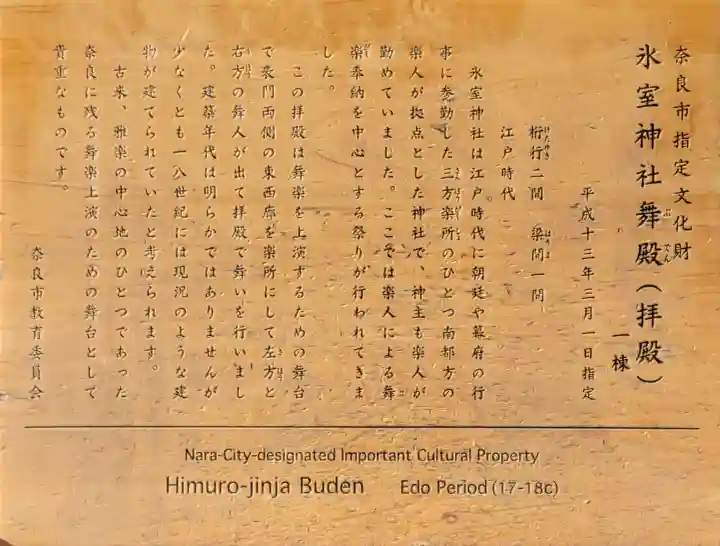 奈良市指定文化財
氷室神社舞殿（拝殿）
一棟
平成十三年三月一日指定
桁行二間　梁間一間
江戸時代
氷室神社は江戸時代に朝廷や幕府の行
事に参勤した三方楽所のひとつ南都方の
楽人が拠点とした神社で、神主も楽人が
勤めていました。ここでは楽人による舞
楽奉納を中心とする祭りが行われてきま
した。
この拝殿は舞楽を上演するための舞台
で表門両側の東西廊を楽所にして左方と
右方の舞人が出て拝殿で舞いを行いまし
た。建築年代は明らかではありませんが
少なくとも一八世紀には現況のような建
物が建てられていたと考えられます。
古来、雅楽の中心地のひとつであった
奈良に残る舞楽上演のための舞台として
貴重なものです。
奈良市教育委員会
Nara-City-designated Important Cultural Property
Himuro-jinja Buden Edo Period (17-18c)